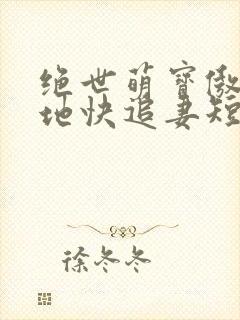 绝世萌宝傲
地快追妻短
徐冬冬